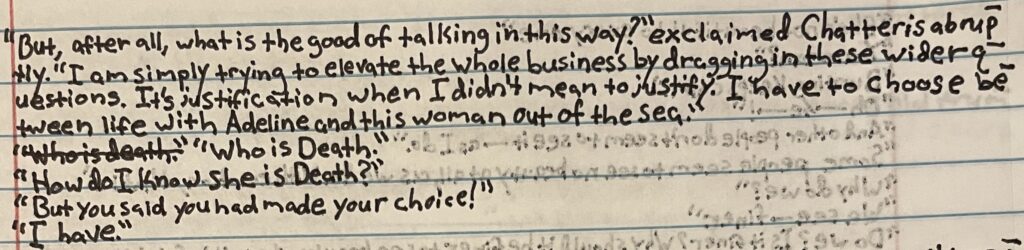 "But, after all, what is the good of talking in this way?" exclaimed Chatteris abrup
tly. "I am simply trying to elevate the whole business by dragging in these wider q
uestions. It's justification when I didn't mean to justify. I have to choose be
tween life with Adeline and this woman out of the sea."
"Who is death." "Who is Death."
"How do I know she is Death?"
"But you said you had made your choice!"
"I have."